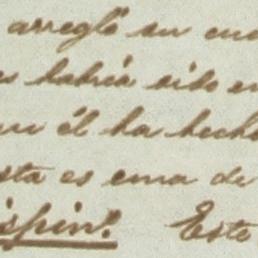 arregló su cue
s había sido en
un él ha hecho
sta es una de
ispin! Este